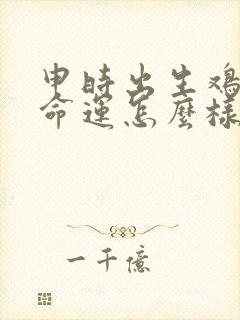 申時出生鸡
命運怎麽樣
一千億